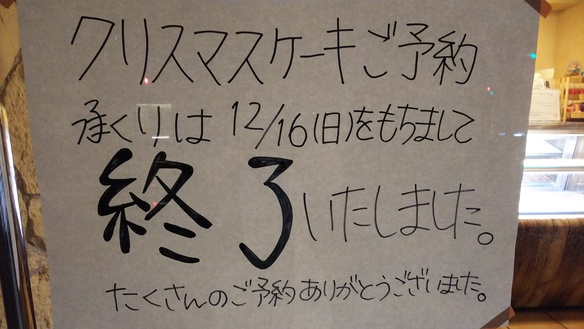 クリスマスケーキご予約
承くりは 12/16(日)をもちまして
終了いたしました。
たくさんのご予約ありがとうございました。